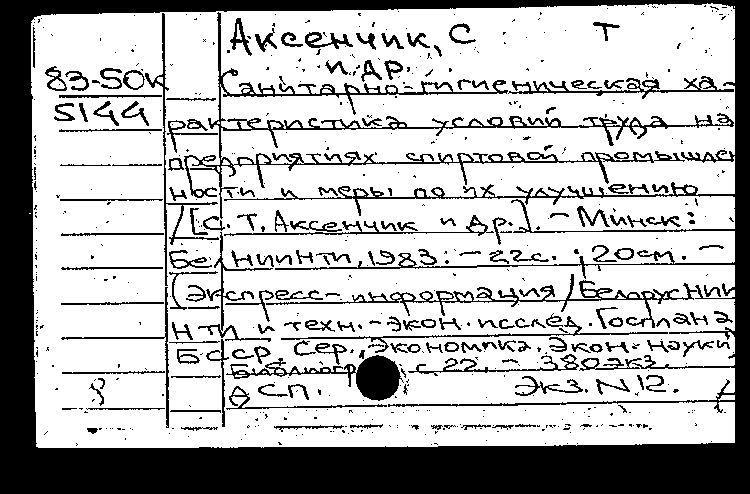 Аксенчик, С Т
и др.
83-50к Санитарно-гигиеническая ха-
5144 рактеристика условий труда на
предприятиях спиртовой промышлен
ности и меры по их улучшению
/[С. Т. Аксенчик и др.]. - Минск:
БелНИИНТИ, 1983. - 22с. ; 20см. -
(Экспресс-информация / Белорус НИИ
НТИ и техн.-экон. исслед. Госплана
БССР. Сер., Экономика. Экон. науки
Библиогр с. 22. - 380 экз.
СП. Экз. N 12.